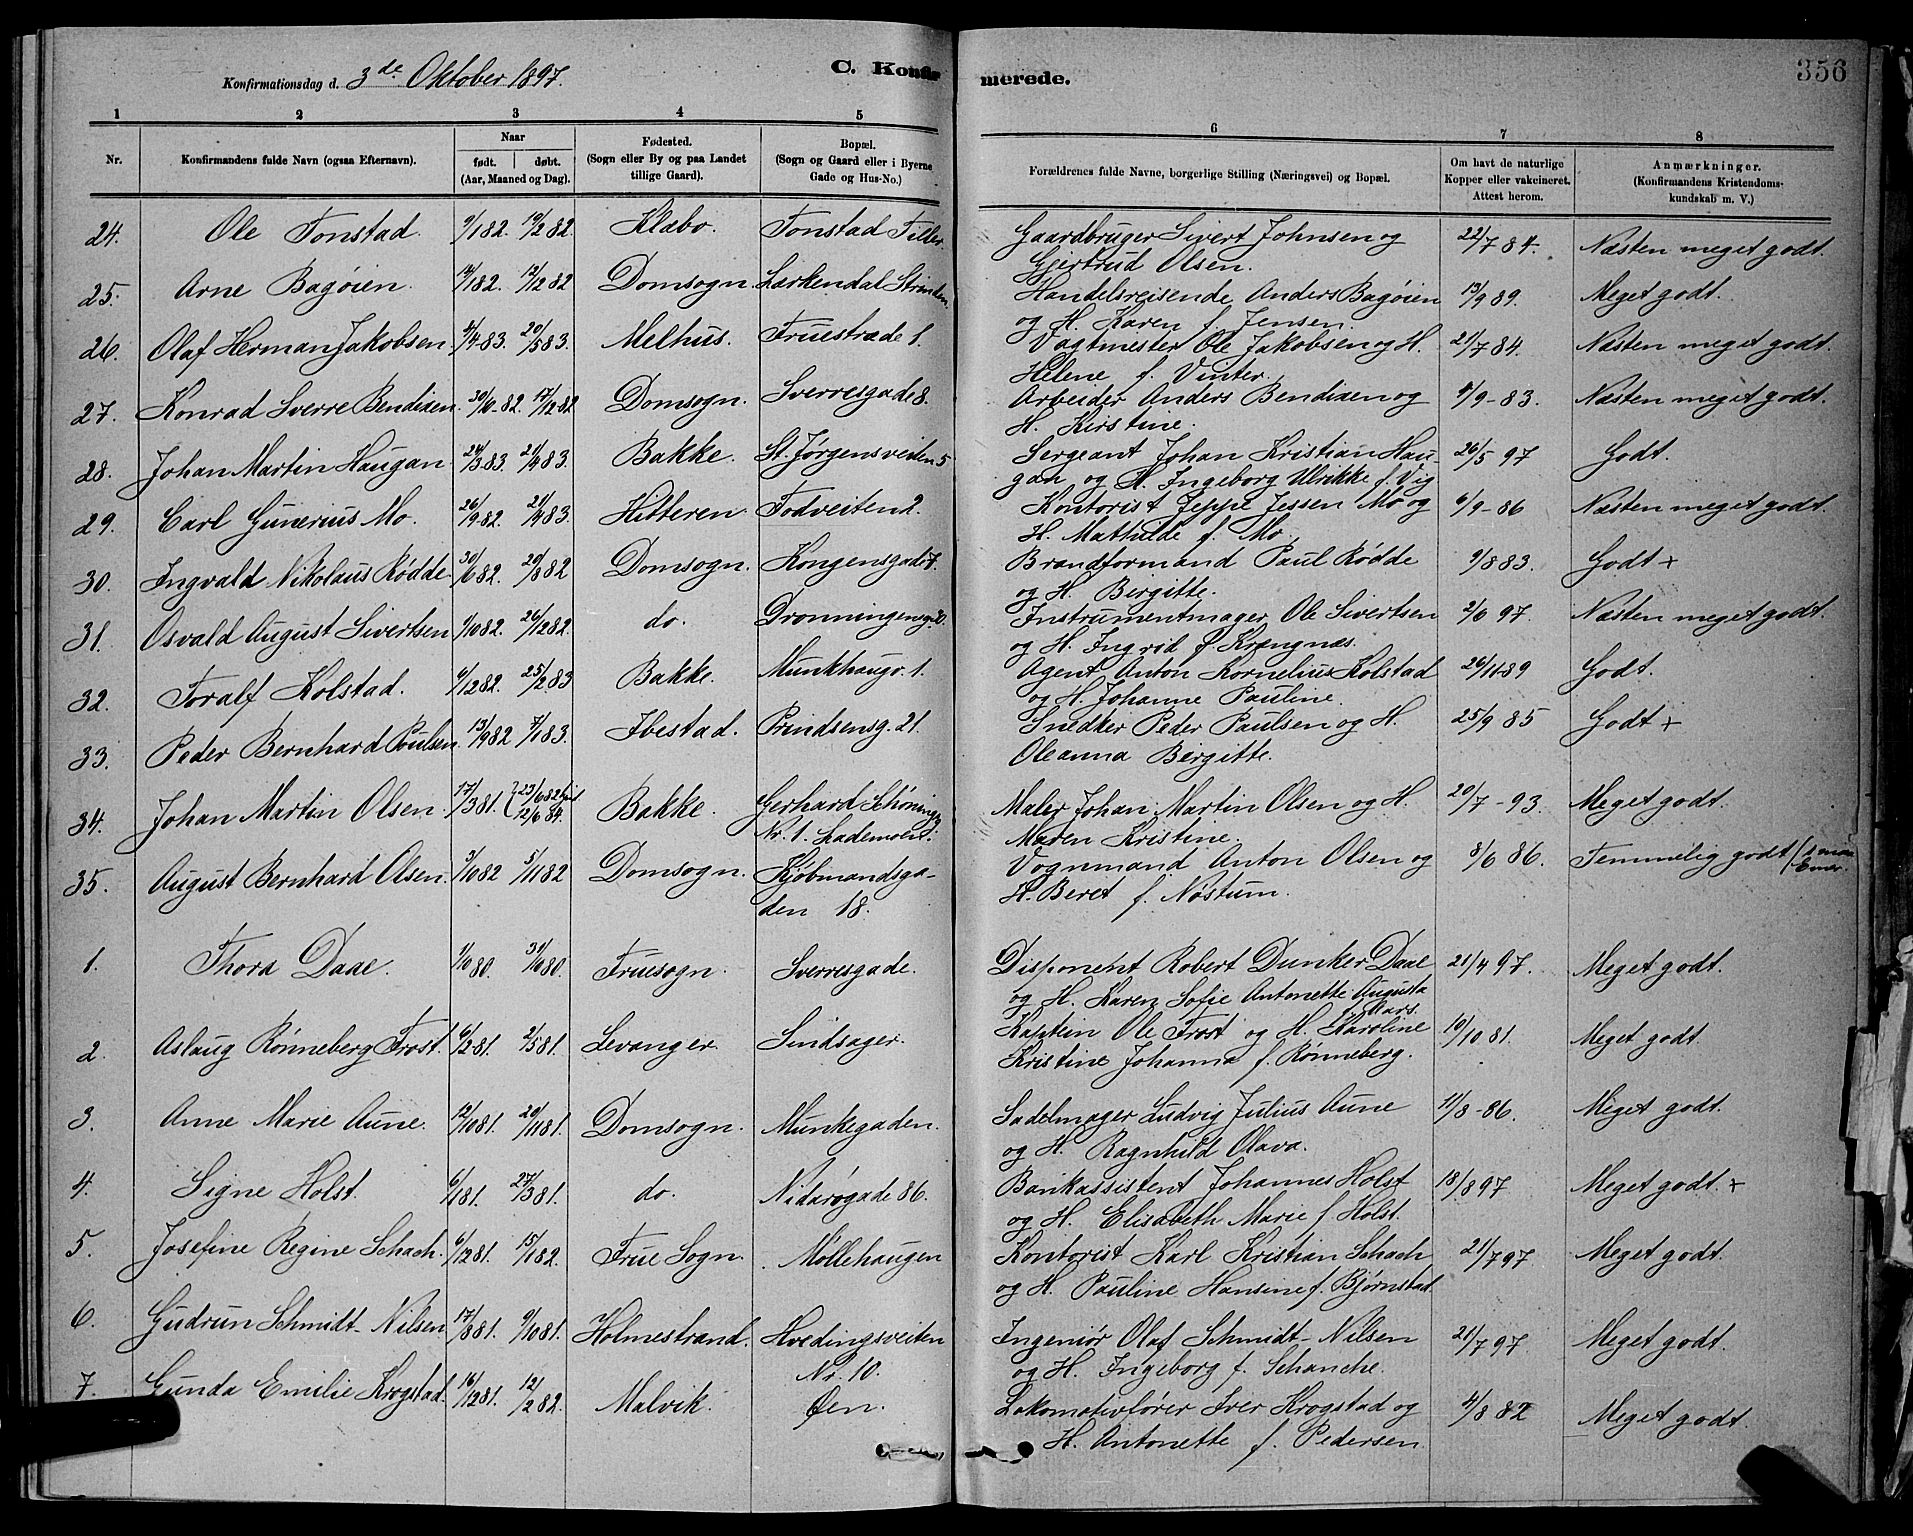 Konfirmationsdag d. 3de Oktober 1897. C. Konfirmerede. 356
1 2 3 4 5 6 7 8
Nr. Konfirmandens fulde Navn (ogsaa Efternavn). Naar født. døbt. (Aar, Maaned og Dag). Fødested. (Sogn eller By og paa Landet tillige Gaard). Bopæl. (Sogn og Gaard eller i Byerne Gade og Hus-No.) Forældrenes fulde Navne, borgerlige Stilling (Næringsvei) og Bopæl. Om havt de naturlige Kopper eller vakcineret. Attest herom. Anmærkninger. (Konfirmandens Kristendomskundskab m. V.)
24. Ole Tonstad. 9/1 82. 19/2 82. Klæbo. Tonstad Tiller. Gaardbruger Sivert Johnsen og 22/7 84. Næsten meget godt.
Gjertrud Olsen.
25. Arne Bagøien. 12/2 82 Domsogn. Lærkendal Strinden. Handelsreisende Anders Bagøien 13/9 89. Meget godt.
og H. Karen f. Jensen.
26. Olaf Herman Jakobsen 4/4 83. 20/5 83. Melhus. Fruestræde 1. Vagtmester Ole Jakobsen og H. 21/7 84. Næsten meget godt.
Helene f. Vinter.
27. Konrad Sverre Bendixen. 30/10 82. 17/12 82 Domsogn. Sverresgade 8. Arbeider Anders Bendixen og 8/9-83. Næsten meget godt.
H. Kirstine.
28. Johan Martin Haugan 24/3 83. 21/4 83. Bakke. St. Jørgensveiten 5 Sergeant Johan Kristian Hau- 26/5 97 Godt.
gan og H. Ingeborg Ulrikke f. Vig
29. Carl Gunerius Mo. 26/9 82. 21/4 83. Hitteren. Todveiten 2. Kontorist Jeppe Jessen Mo og 6/9-86 Næsten meget godt.
H. Mathilde f. Mo.
30. Ingvald Nikolaus Rødde 30/6 82. 20/8 82 Domsogn. Kongensgade 7. Brandformand Paul Rødde 9/8 83. Godt +
og H. Birgitte.
31. Osvald August Sivertsen 1/10 82. 26/12 82. do. Dronningensg. Instrumentmager Ole Sivertsen 2/6 97. Næsten meget godt.
og H. Ingrid f. Krengnæs.
32. Toralf Kolstad. 9/12 82. 25/2 83 Bakke. Munkhaugv. 1. Agent Anton Kornelius Kolstad 26/11-89 Godt.
og H. Johanne Pauline.
33. Peder Bernhard Poulsen 13/9 82 7/1 83. Ibestad. Prindsensg. 21. Snedker Peder Paulsen og H. 25/9 85 Godt +
Oleanna Birgitte.
34. Johan Martin Olsen. 17/3 81. 12/6 84. Bakke. Gerhard Schønings Maler Johan Martin Olsen og H. 20/7-93. Meget godt.
Nr. 1. Lademoen. Maren Kristine.
35. August Bernhard Olsen. 3/10 82 5/11 82 Domsogn. Kjøbmandsga- Vognmand Anton Olsen og 8/6 86. Temmelig godt
den 18. H. Beret f. Nøstum.
1. Thora Daae. 1/10 80. 31/10 80. Fruesogn. Sverresgade. Disponent Robert Dunker Daae 21/4 97. Meget godt.
og H. Karen Sofie Antonette Augusta
Aars.
2. Aslaug Rønneberg Frost. 6/2 81. 2/5 81. Levanger. Sindsager. Kaptein Ole Frost og H. Karoline 19/10 81. Meget godt
Kristine Johanna f. Rønneberg.
3. Anne Marie Aune. 12/10 81. 20/11 81. Domsogn. Munkegaden. Sadelmager Ludvig Julius Aune 11/8-86. Meget godt.
og H. Ragnhild Olava.
4. Signe Holst. 6/1 81. 27/3 81. do. Nidarøgade 86. Bankassistent Johannes Holst 18/8 97 Meget godt. +
og H. Elisabeth Marie f. Holst.
5. Josefine Regine Schach. 6/12 81. 15/1 82. Frue Sogn. Møllehaugen Kontorist Karl Kristian Schach 21/7 97. Meget godt.
og H. Pauline Hansine f. Bjørnstad.
6. Gudrun Schmidt-Nilsen 17/8 81. 9/10 81. Holmestrand. Hvedingsveiten Ingeniør Olaf Schmidt-Nilsen 21/7 97. Meget godt.
Nr. 10. og H. Ingeborg f. Schanche.
7. Gunda Emilie Krogstad. 16/12 81. 12/2 82. Malvik. Øen. Lokomotivfører Iver Krogstad og 4/8 82 Meget godt.
H. Antonette f. Pedersen